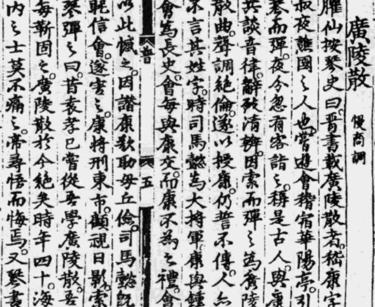 廣陵散
慢商調
臞仙按琴史曰晉書載廣陵散者嵇康字
叔夜譙國之人也嘗遊會稽宿華陽亭引
琴而彈夜今忽有客詣之稱是古人與康
共談音律辭致清辨因索而彈之為廣陵
散曲聲調絕倫遂以授康仍誓不傳人亦
不言其姓字時司馬懿為大將軍康與鍾
會為長史會每與康交而康不為之禮會
普
五
以此憾之因譖康欲助毋丘儉司馬懿既
昵信會遂害之康將刑東市顧視日影索
琴彈之曰昔袁孝已嘗從吾學廣陵散吾
每靳固之廣陵散於今絕矣時年四十海
內之士莫不痛之帝尋悟而悔焉又琴書